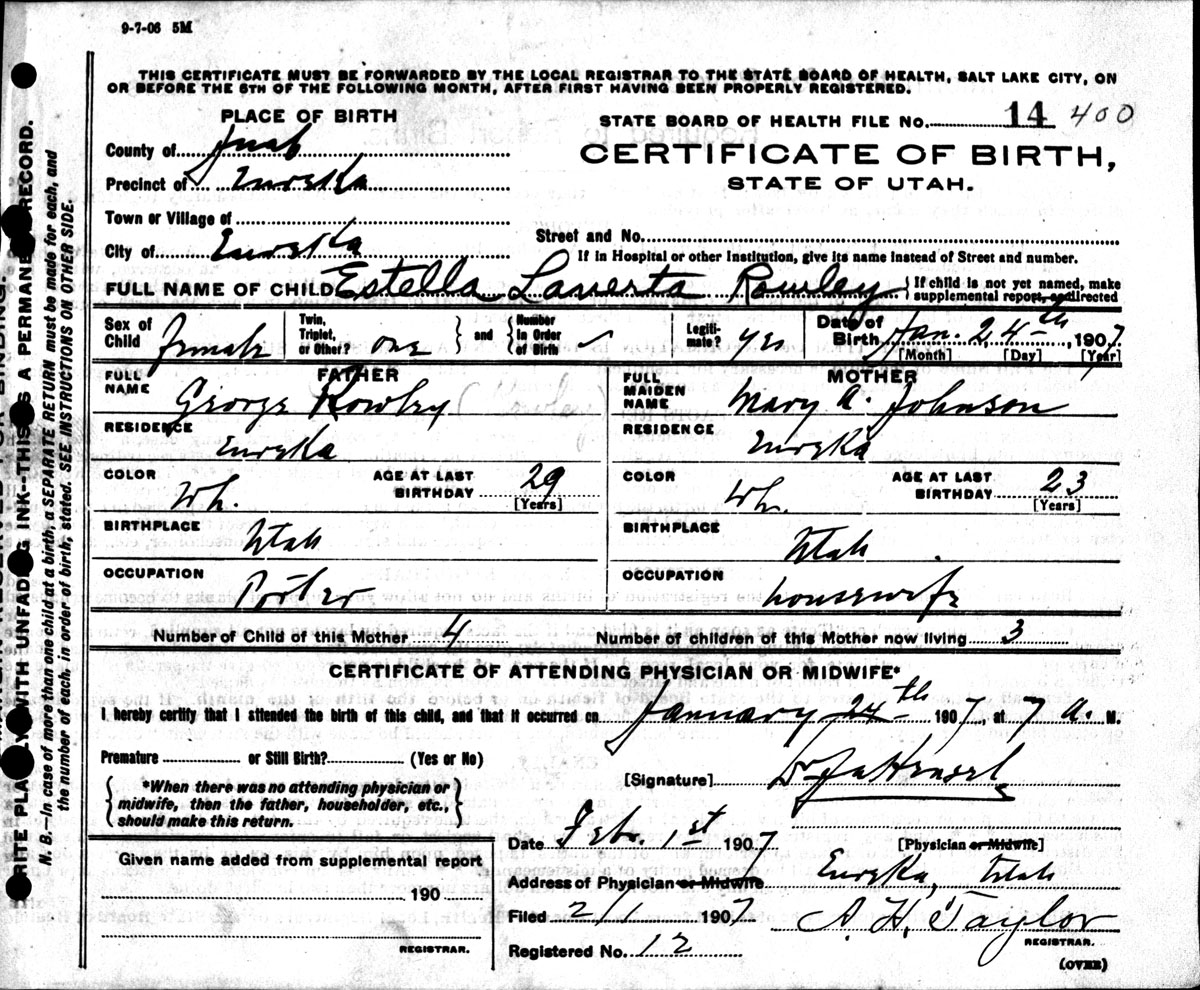 9-7-06 5M
THIS CERTIFICATE MUST BE FORWARDED BY THE LOCAL REGISTRAR TO THE STATE BOARD OF HEALTH, SALT LAKE CITY, ON
OR BEFORE THE 5TH OF THE FOLLOWING MONTH, AFTER FIRST HAVING BEEN PROPERLY REGISTERED.
PLACE OF BIRTH
STATE BOARD OF HEALTH FILE NO. 14 400
County of Juab
CERTIFICATE OF BIRTH,
Precinct of Eureka
STATE OF UTAH.
Town or Village of
Street and No.
City of Eureka
If in Hospital or other Institution, give its name instead of Street and number.
FULL NAME OF CHILD Estella Laverta Rowley
If child is not yet named, make
supplemental report, as directed
Sex of Child female
Twin, Triplet, or Other? one and Number in Order of Birth
Legiti-mate? yes
Date of Birth Jan. 24th 1907
[Month] [Day] [Year]
FATHER
FULL NAME George Rowley
RESIDENCE Eureka
COLOR Wh. AGE AT LAST BIRTHDAY 29
[Years]
BIRTHPLACE Utah
OCCUPATION Porter
MOTHER
FULL MAIDEN NAME Mary A. Johnson
RESIDENCE Eureka
COLOR Wh. AGE AT LAST BIRTHDAY 23
[Years]
BIRTHPLACE Utah
OCCUPATION housewife
Number of Child of this Mother 4 Number of children of this Mother now living 3
CERTIFICATE OF ATTENDING PHYSICIAN OR MIDWIFE*
I hereby certify that I attended the birth of this child, and that it occurred on January 24th 1907, at 7 a. M.
Premature or Still Birth? (Yes or No)
[Signature]
*When there was no attending physician or
midwife, then the father, householder, etc.,
should make this return.
Date Febr. 1st 1907
[Physician or Midwife]
Given name added from supplemental report
190
REGISTRAR.
Address of Physician or Midwife Eureka, Utah
Filed 2/1 1907 A. H. Taylor
REGISTRAR.
Registered No. 12
(OVER)
WRITE PLAINLY WITH UNFADING INK--THIS IS A PERMANENT RECORD.
N. B.—In case of more than one child at a birth, a SEPARATE RETURN must be made for each, and
the number of each, in order of birth, stated. SEE INSTRUCTIONS ON OTHER SIDE.